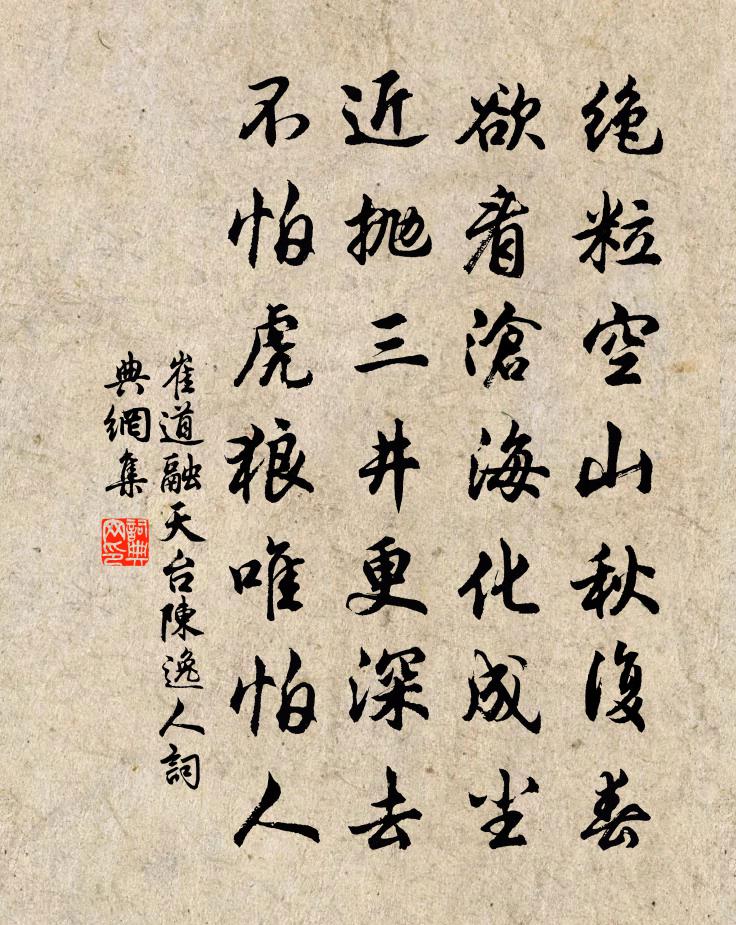 绝粒空山秋復春
欲看滄海化成尘
近抛三井更深去
不怕虎狼唯怕人
崔道融天台陳逸人詞
典網集
詞典网印